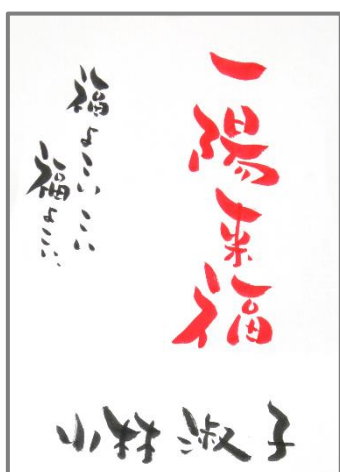 一陽来福
福よこいこい
福よこい
小林淑子